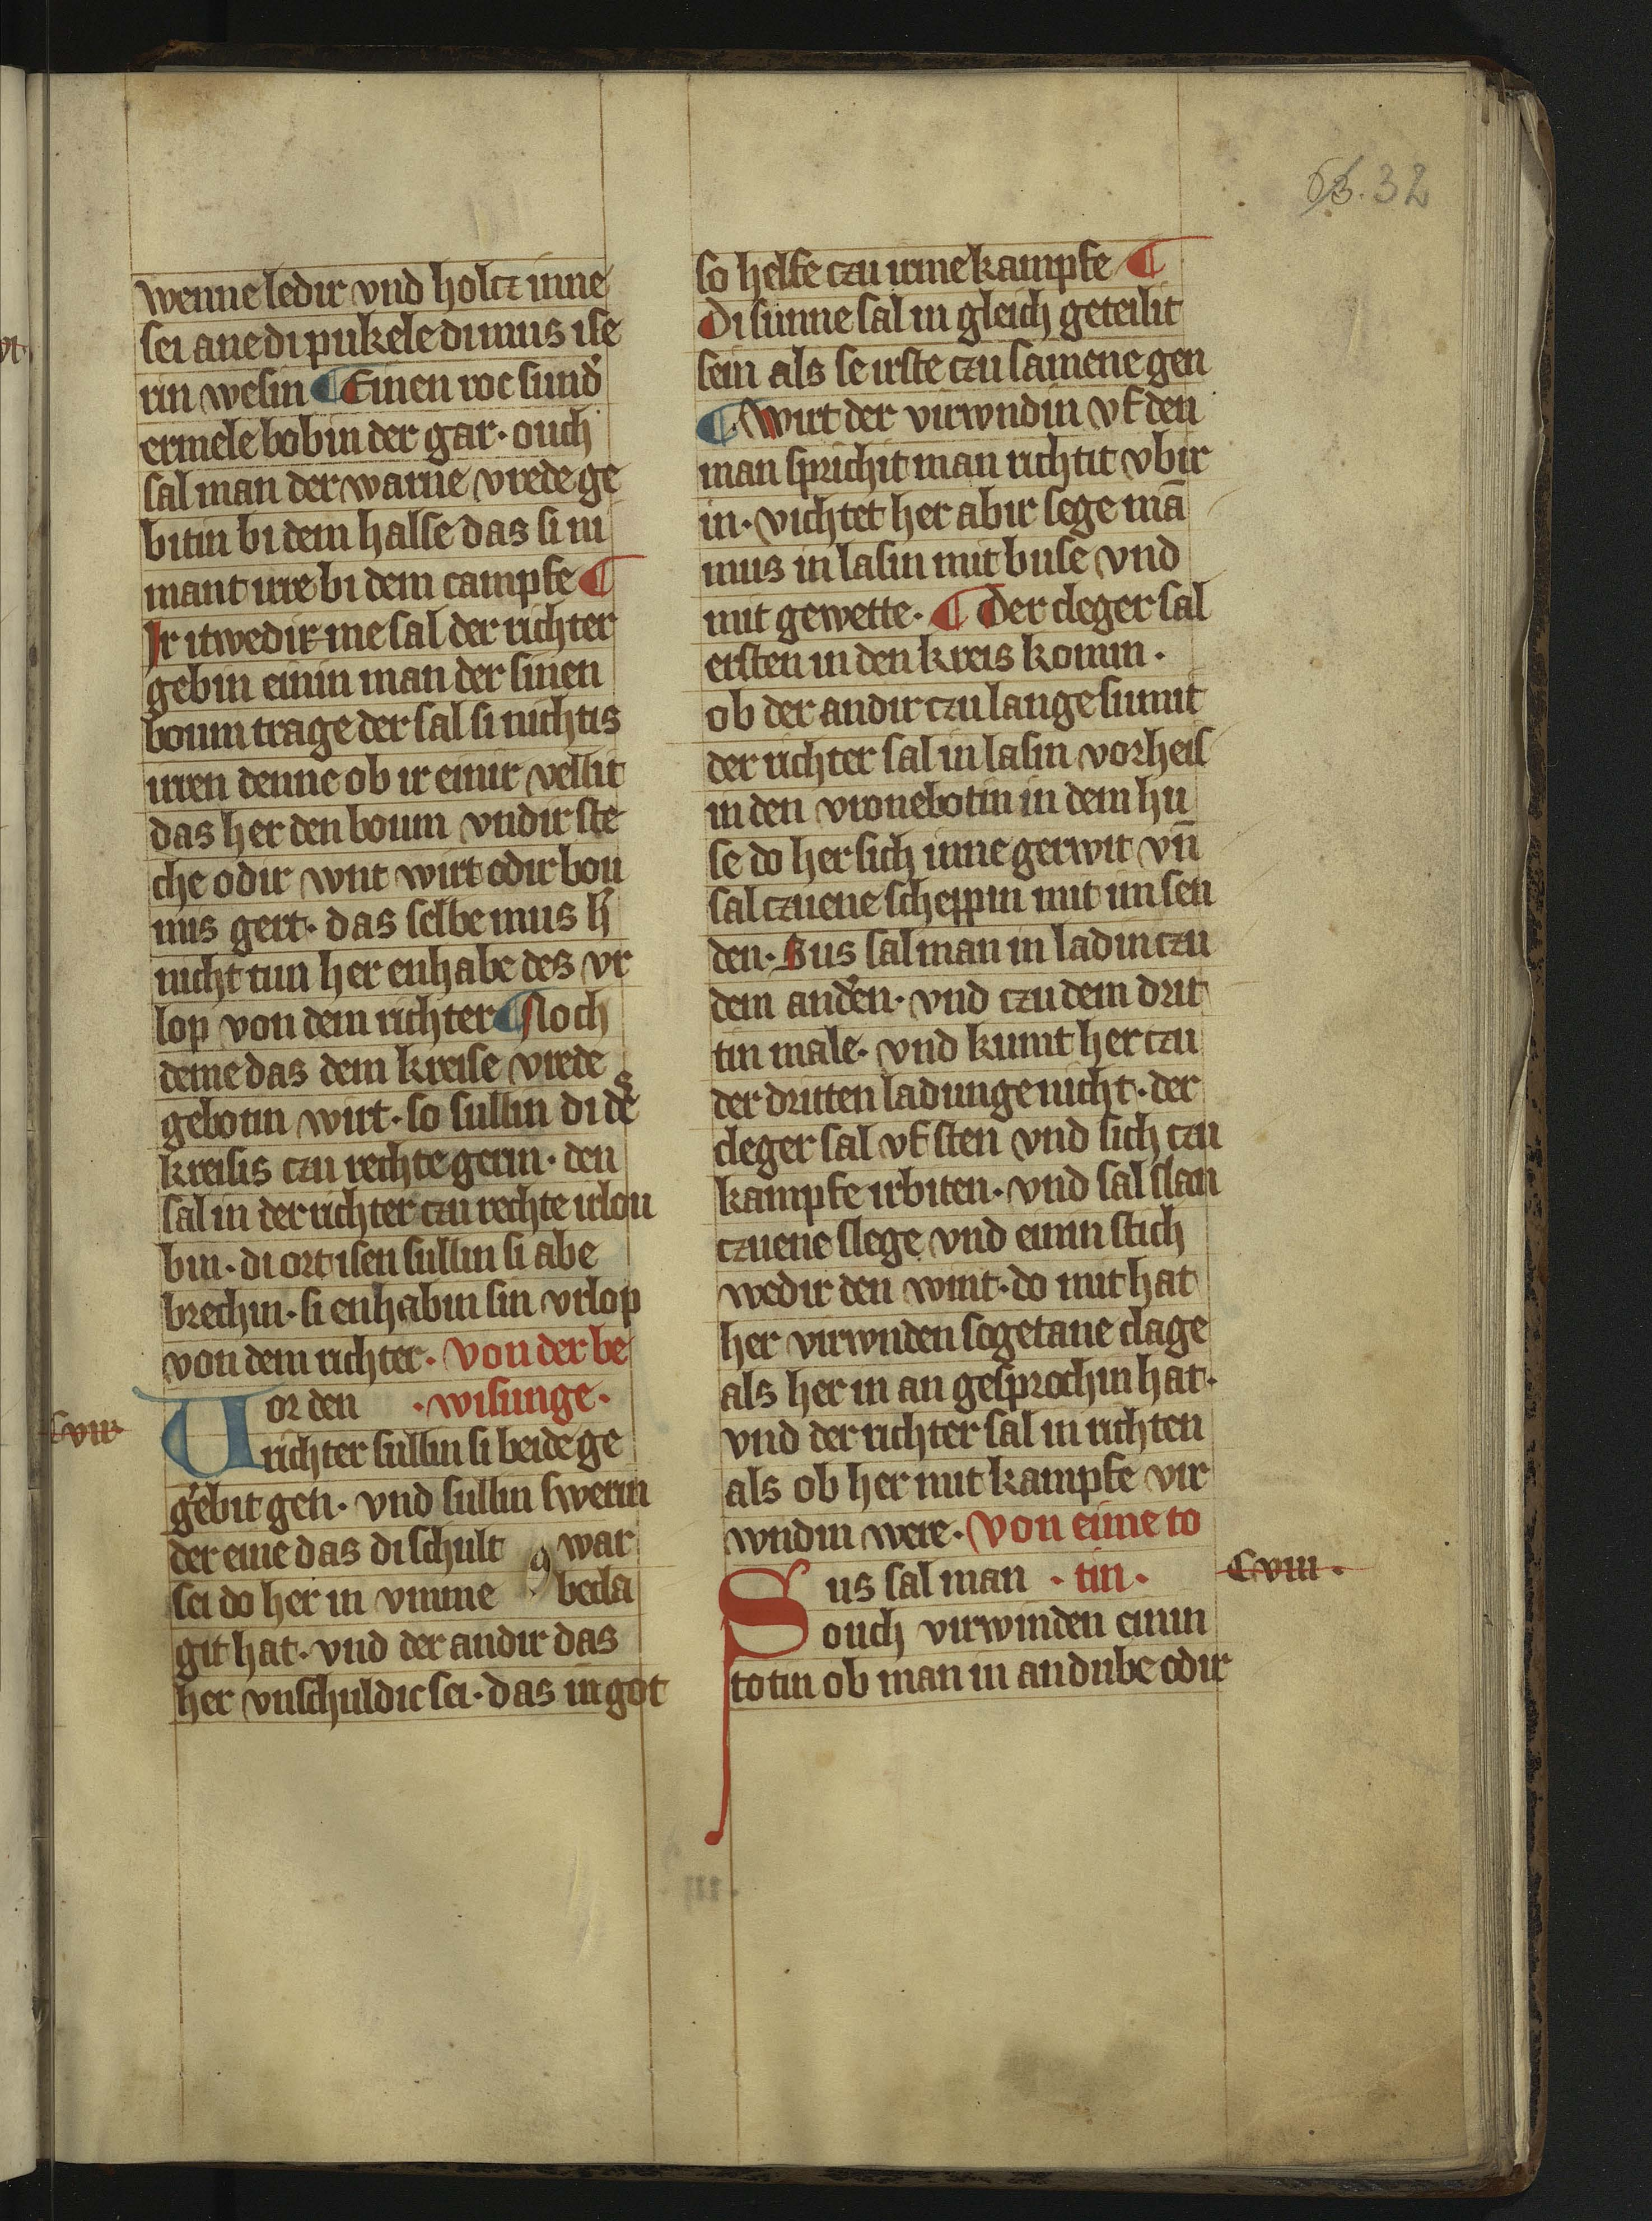 63. 32
wenne ledir vnd holcz inne
sei ane di pukele di mus ise
rin wesin ¶ Einen roc sund͛
ermele bobin der gar · ouch
sal man der warne vrede ge
bitin bi dem halse das si ni
mant irre bi dem campfe ¶
Ir itwedir me sal der richter
gebin einin man der sinen
boum trage der sal si nichtis
irren denne ob ir einir vellit
das her den boum vndir ste
che odir wnt wirt odir bou
mis gert · das selbe mus h͛
nicht tun her enhabe des vr
lop von dem richter ¶ Noch
deme das dem kreise vrede
gebotin wirt · so sullin di de͛s
kreisis czu rechte gerin · den
sal in der richter czu rechte irlou
bin · di ortisen sullin si abe
brechin · si enhabin sin vrlop
von dem richter · Von der be
Vor den · wisunge ·
Cvii
richter sullin si beide ge
g͛ebit gen · vnd sullin swerin
der eine das di schult war
sei do her in vmme becla
git hat · vnd der andir das
her vnschuldic sei · das in got
so helfe czu irme kampfe ¶
Di sunne sal in gleich geteilit
sein als se irste czu samene gen
¶ Wirt der virwndin vf den
man sprichit man richtit vbir
in · vichtet her abir sege mā
mus in lasin mit buse vnd
mit gewette · ¶ Der cleger sal
ersten in den kreis komin ·
ob der andir czu lange sumit
der richter sal in lasin vorheis
in den vronebotin in dem hu
se do her sich inne gerwit vn̄
sal czuene scheppin mit im sen
den · Sus sal man in ladin czu
dem and͛en · vnd czu dem drit
tin male · vnd kumt her czu
der dritten ladunge nicht · der
cleger sal vf sten vnd sich czu
kampfe irbiten · vnd sal slan
czuene slege vnd einin stich
wedir den wint · do mit hat
her virwnden sogetane clage
als her in an gesprochin hat ·
vnd der richter sal in richten
als ob her mit kampfe vir
wndin were · Von eime to
Sus sal man · tin ·
Cviii ·
ouch virwinden einin
totin ob man in an dube odir